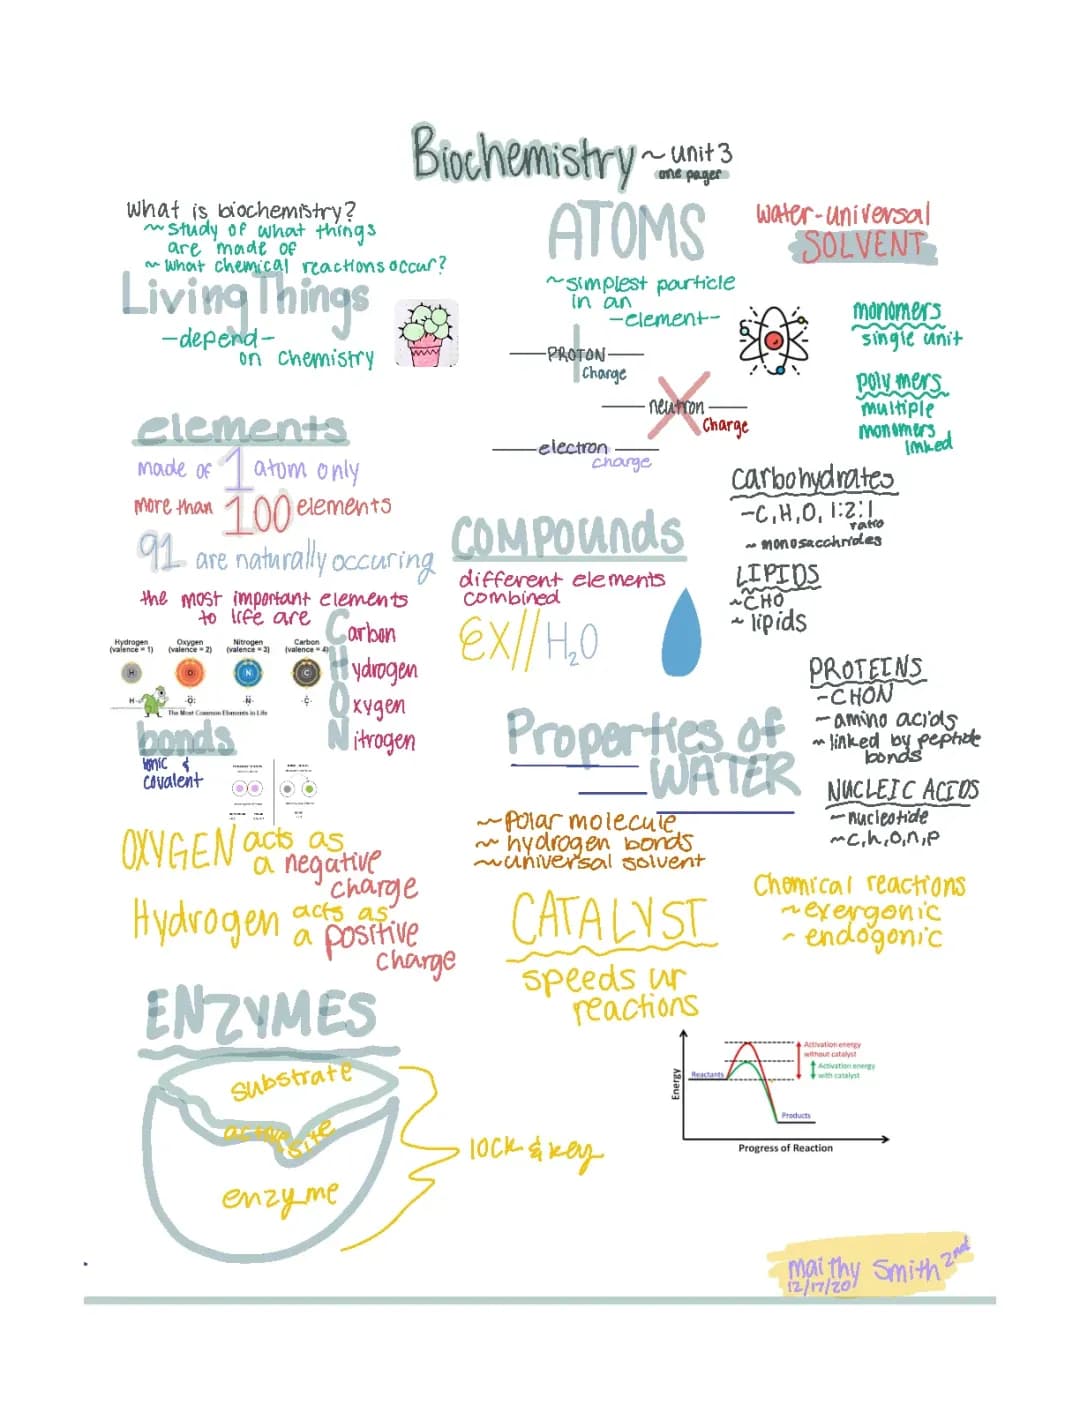 Biochemistry ~ unit 3
one pager
What is biochemistry?
~ study of what things
are made of
~ what chemical reactions occur?
Living Things
-depend-
on chemistry
elements
made of 1 atom only
more than 100 elements
91 are naturally occuring
the most important elements
to life are
Carbon
Hydrogen
Oxygen
Nitrogen
Hydrogen
(valence = 1)
Oxygen
(valence = 2)
Nitrogen
(valence = 3)
Carbon
(valence = 4)
H
O
N
C
H-
·O:
·N·
·C·
The Most Common Elements in Life
bonds
ionic &
covalent
OXYGEN acts as
a negative
charge
Hydrogen acts as
a positive
charge
ENZYMES
substrate
active site
enzyme
lock & key
ATOMS
~simplest particle
in an
-element-
PROTON
charge
neutron
charge
electron
charge
COMPOUNDS
different elements
combined
EX// H₂O
Properties of
WATER
~ Polar molecule
~ hydrogen bonds
~ universal solvent
CATALYST
speeds ur
reactions
water-universal
SOLVENT
monomers
single unit
polymers
multiple
monomers
linked
Carbohydrates
-C,H,O, 1:2:1
ratio
~ monosacchrides
LIPIDS
~CHO
~ lipids
PROTEINS
-CHON
- amino acids
~ linked by peptide
bonds
NUCLEIC ACIDS
- nucleotide
~c,h,o,n,p
Chemical reactions
~ exergonic
~ endogonic
Energy
Reactants
Activation energy
without catalyst
Activation energy
with catalyst
Products
Progress of Reaction
maithy Smith 2nd
12/17/20